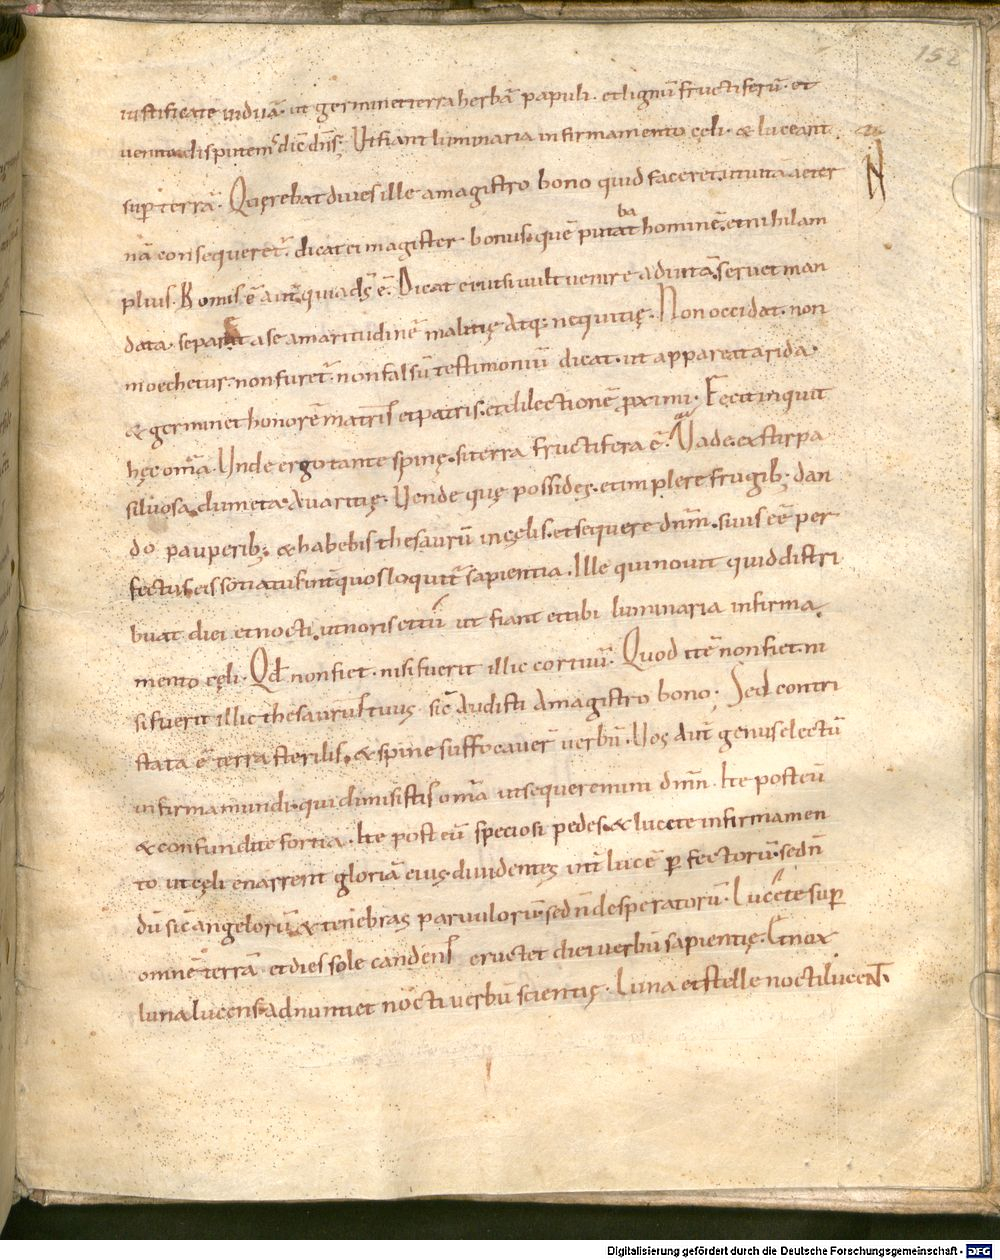 152
iustificate viduā· ut germinet terra herbā papuli· et lignū fructiferū· et
venite disputem dic̄ dn̄s; Ut fiant luminaria in firmamento cęli· & luceant
sup terrā· Quęrebat dives ille a magistro bono quid faceret ut vitā aeter
nā consequeret̄· dicat ei magister bonus quē putabat hominē et nihil am
plius· Bonus ē aut̄ quia ds̄ ē· Dicat ei ut si vult venire ad vitā servet man
data· separet a se amaritudinē malitię atq; nequitię· Non occidat· non
moechetur· non furet̄· non falsū testimoniū dicat· ut appareat arida·
& germinet honorē matris et patris· et dilectionē pximi· Feci inquit
hęc om̄a· Unde ergo tante spinę· si terra fructifera ē· Vade exstirpa
silvosa dumeta avaritię· Vende quę possides· et implere frugib; dan
do pauperib; & habebis thesaurū in cęlis· et sequere dnm̄· si vis eē per
fectus eis sotiatus int̄ quos loquit̄ sapientia· Ille qui novit quid distri
buat diei et nocti· ut noris et tū ut fiant et tibi luminaria in firma
mento cęli· Qd non fiet· nisi fuerit illic cor tuū· Quod itē non fiet· ni
si fuerit illic thesaurus tuus sic̄ audisti a magistro bono; Sed contri
stata ē terra sterilis· & spine suffocaver̄ verbū· Vos aut̄ genus electū
infirma mundi· qui dimisistis om̄a ut sequeremini dnm̄· Ite post eū
& confundite fortia· Ite post eū speciosi pedes· & lucete in firmamen
to ut cęli enarrent gloriā eius dividentes int̄ lucē pfectorū· sed n̄
dū sic̄ angelorū & tenebras parvulorū· sed n̄ desperatorū· Lucete sup
omnē terrā· et dies sole candens eructet diei verbū sapientię· Et nox
luna lucens adnuntiet nocti verbū scientię· Luna et stelle nocti lucent·
Digitalisierung gefördert durch die Deutsche Forschungsgemeinschaft - DFG